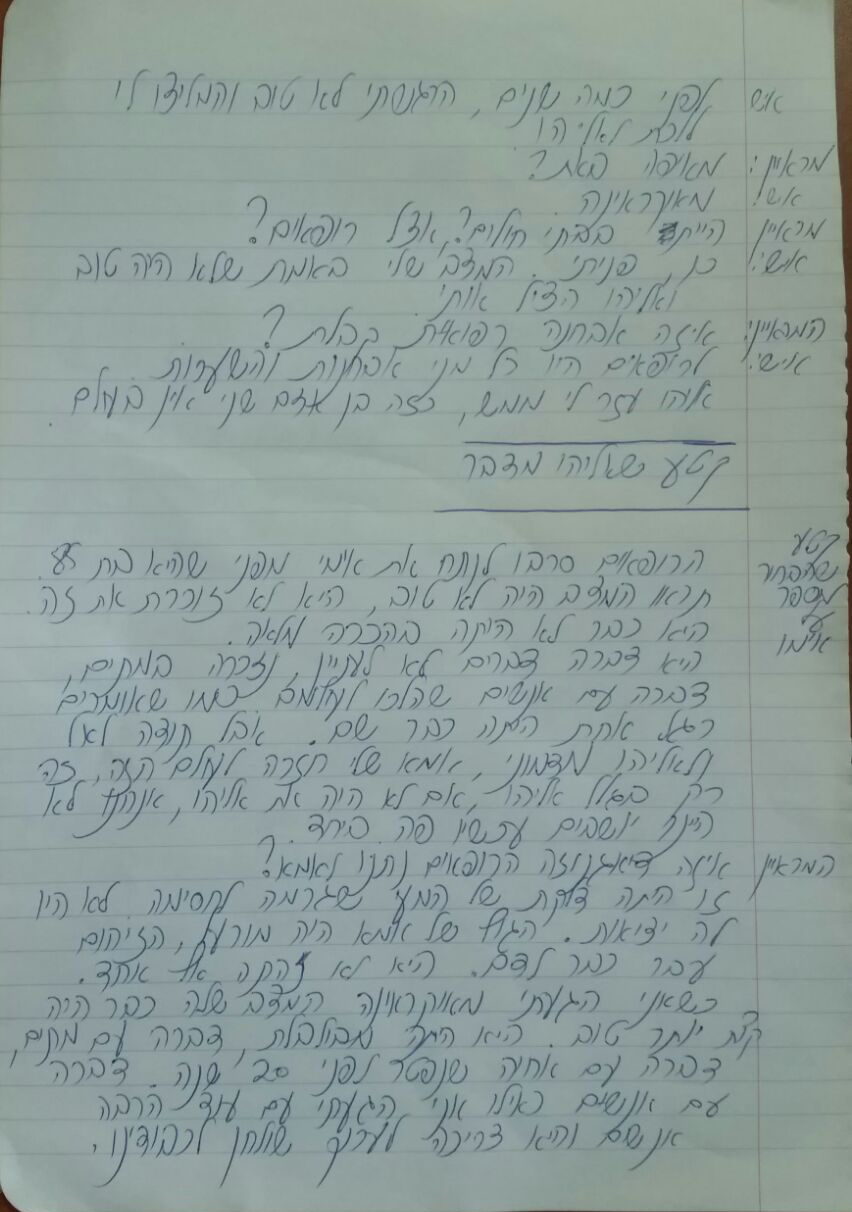 איש לפני כמה שנים, הרגשתי לא טוב והמליצו לי
ללכת לאליהו
מראיין: מאיפה באת?
איש: מאוקראינה.
מראיין הייתי בבתי חולים?, אצל רופאים?
איש: כן, פניתי. המצב שלי באמת שלא היה טוב
ואליהו הציל אותי.
המראיין: איזה אבחנה רפואית קבלת?
איש: לרופאים היו כל מני אבחנות והשערות.
אליהו עזר לי ממש, כזה בן אדם שני אין בעולם.
קטע כשאליהו מדבר
קטע הרופאים סרבו לנתח את אימי מפני שהיא בת
שהבחור תראו המצב היה לא טוב, היא לא זוכרת את זה.
מספר על היא כבר לא היתה בהכרה מלאה.
אימו היא דברה דברים לא לעניין, נזכרה במתים,
דברה עם אנשים שהלכו לעולמם. כמו שאומרים
רגל אחת היתה כבר שם. אבל תודה לאל
ולאליהו מצדמוני, אמא שלי חזרה לעולם הזה, זה
רק בגלל אליהו, אם לא היה את אליהו, אנחנו לא
היינו יושבים עכשיו פה ביחד.
המראיין איזה דיאגנוזה הרופאים נתנו לאמא?
זו היתה דלקת של המעי שגרמה לחסימה לא היו
לה יציאות. הגוף של אמא היה מורעל, הזיהום
עבר כבר לדם. היא לא זהתה אף אחד.
כשאני הגעתי מאוקראינה המצב שלה כבר היה
קצת יותר טוב. היא היתה מבולבלת, דברה עם מתים,
דברה עם אחיה שנפטר לפני 20 שנה. דברה
עם אנשים כאילו אני הגעתי עם עוד הרבה
אנשים והיא צריכה לערוך שולחן לכבודינו.